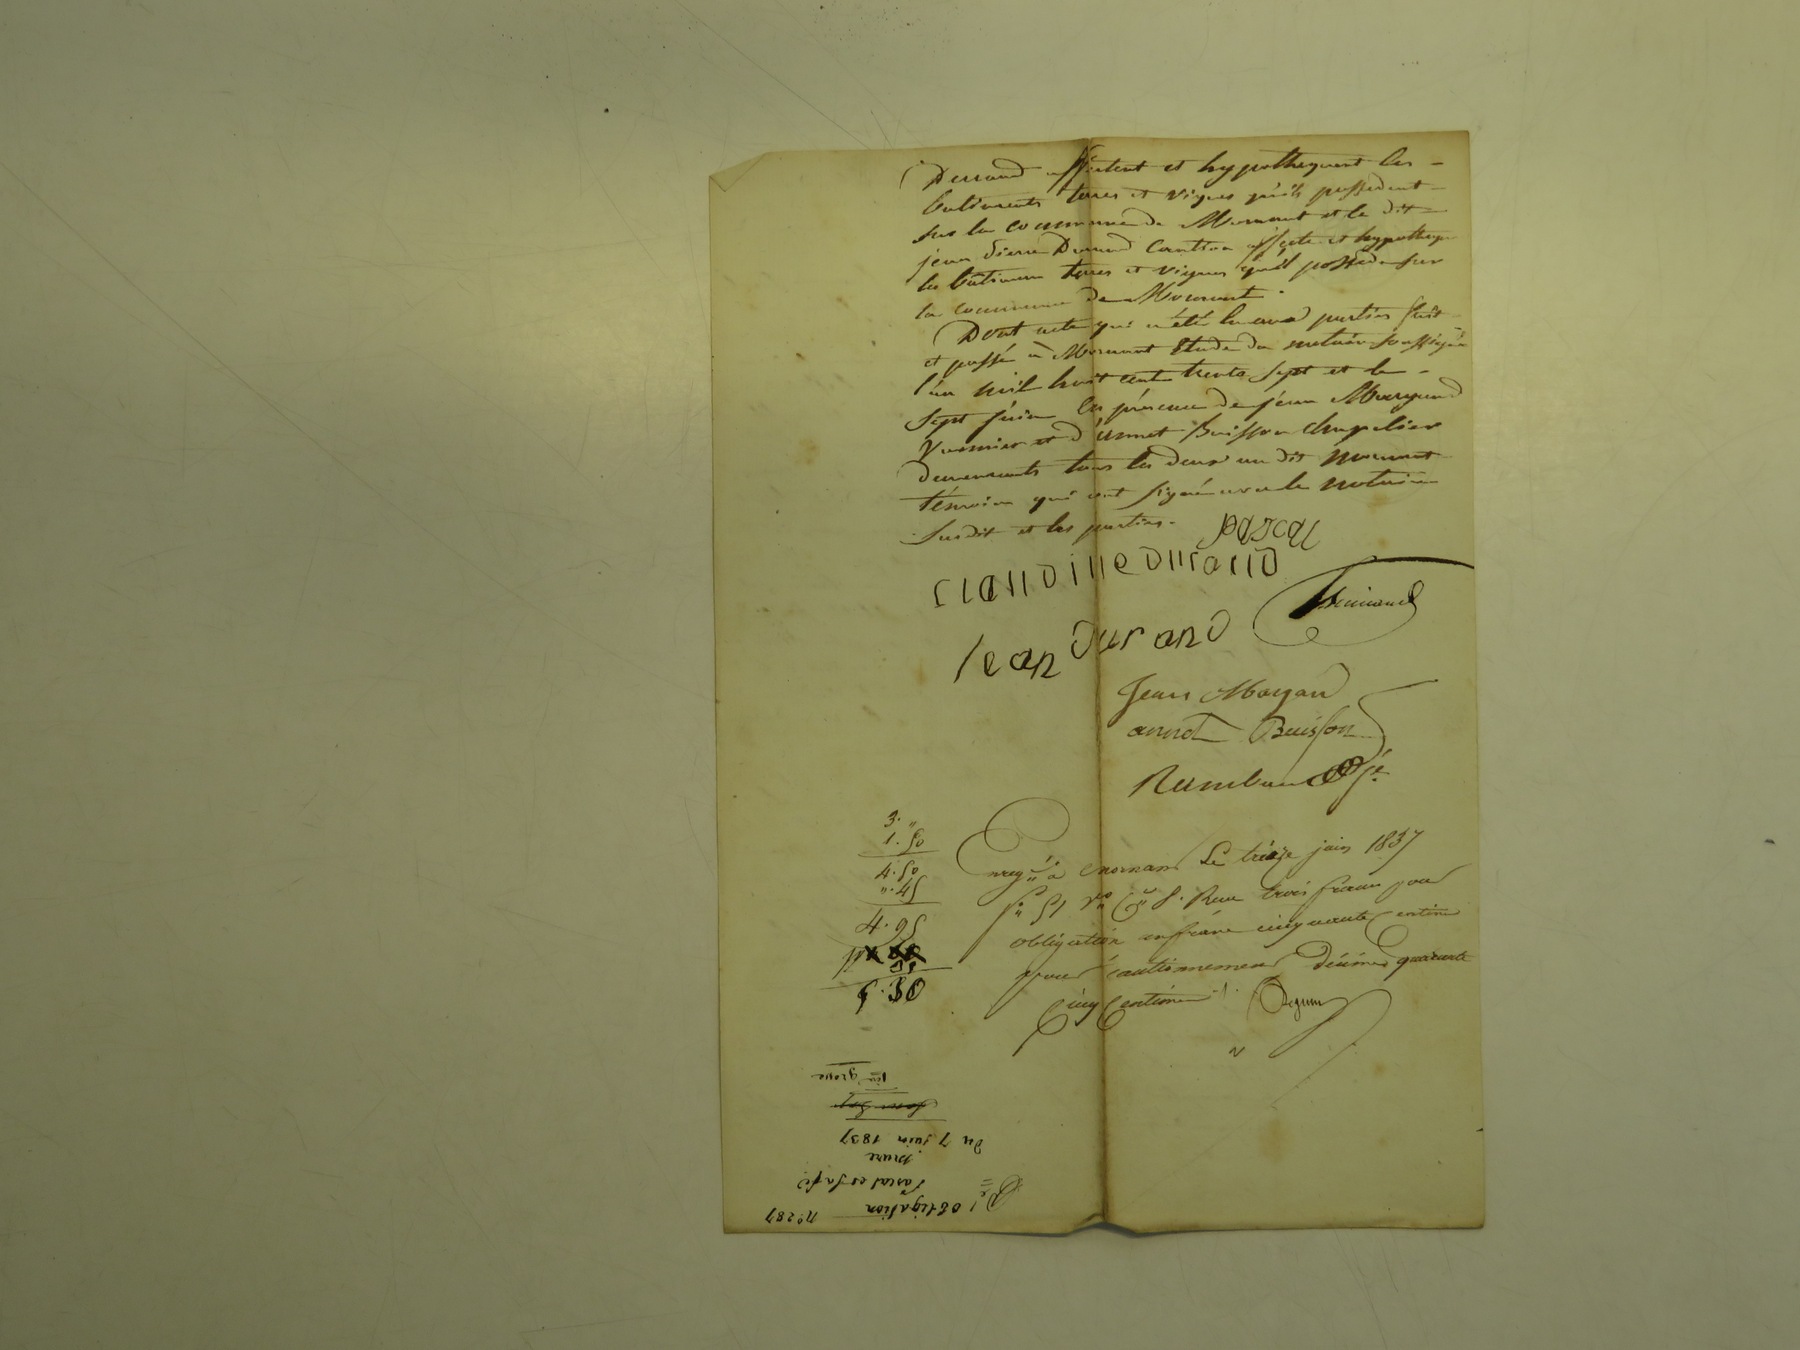 Durand affectent et hypothequent les -
batiments terres et vignes qu'ils possedent -
sur la commune de Mornant et le dit -
jean Pierre Durand Caution affecte et hypotheque
les batiments terres et vignes qu'il possede sur
la commune de Mornant.
Dont acte qui a été lu aux parties fait
et passé à Mornant Etude du notaire soussigné
l'an mil huit cent trente sept et le -
sept juin en présence de jean Margand
et d'annet Buisson chapelier
demeurants tous les deux au dit Mornant
témoins qui ont signé avec le notaire
susdit et les parties.
pascal
claudine durand
Jean durand
Jean Margan
annet Buisson
3. "
1. 50
4. 50
". 45
4. 95
Enreg à mornant Le treize juin 1837
fo 51 Vo Cse 8. Reçu trois francs pour
obligation un franc cinquante centimes
pour cautionnement décime quarante
Cinq Centimes
1ere grosse
du 7 juin 1837
Pascal
Obligation
n° 287